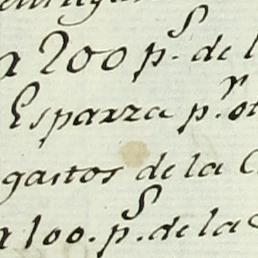 a 200 p.^s de l
Esparza p.^r ot
gastos de la C
a 100. p.^s de la